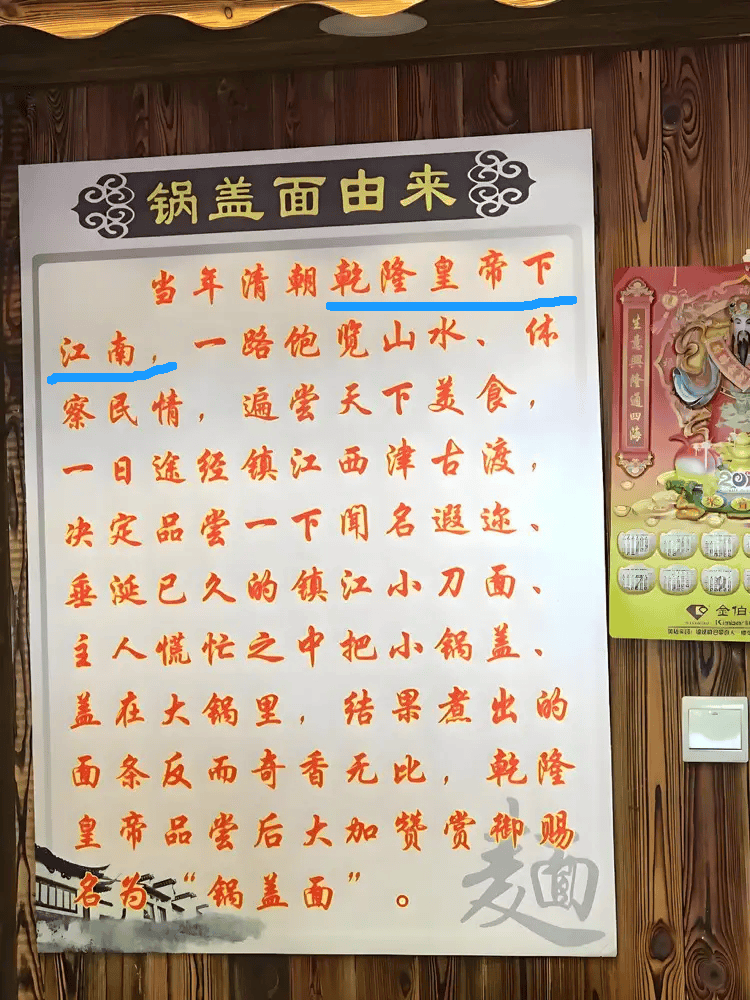 锅盖面由来
当年清朝乾隆皇帝下
江南，一路饱览山水、体
察民情，遍尝天下美食，
一日途经镇江西津古渡，
决定品尝一下闻名遐迩、
垂涎已久的镇江小刀面、
主人慌忙之中把小锅盖、
盖在大锅里，结果煮出的
面条反而奇香无比，乾隆
皇帝品尝后大加赞赏御赐
名为“锅盖面”。
麵
生意興隆通四海
金伯